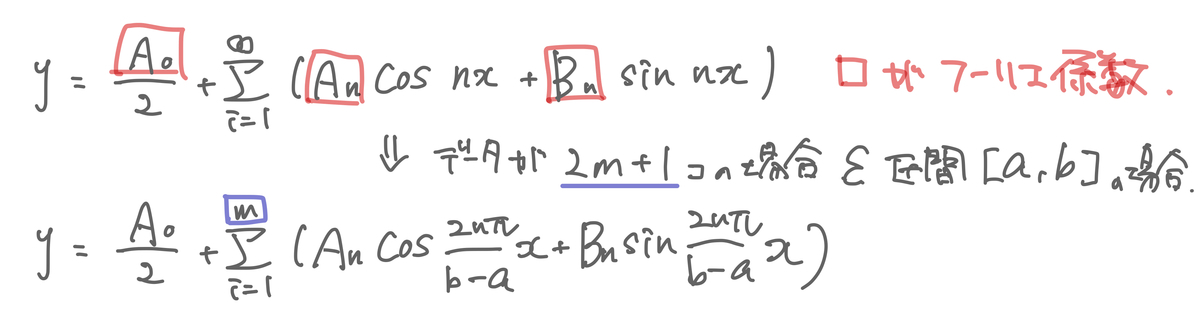 y = A₀/2 + Σ_{i=1}^{∞} (Aₙ cos nx + Bₙ sin nx) □ が フーリエ係数.
⇓ データが 2m+1 コの場合 & 区間 [a,b]の場合.
y = A₀/2 + Σ_{i=1}^{m} (Aₙ cos 2nπ/b-a x + Bₙ sin 2nπ/b-a x)